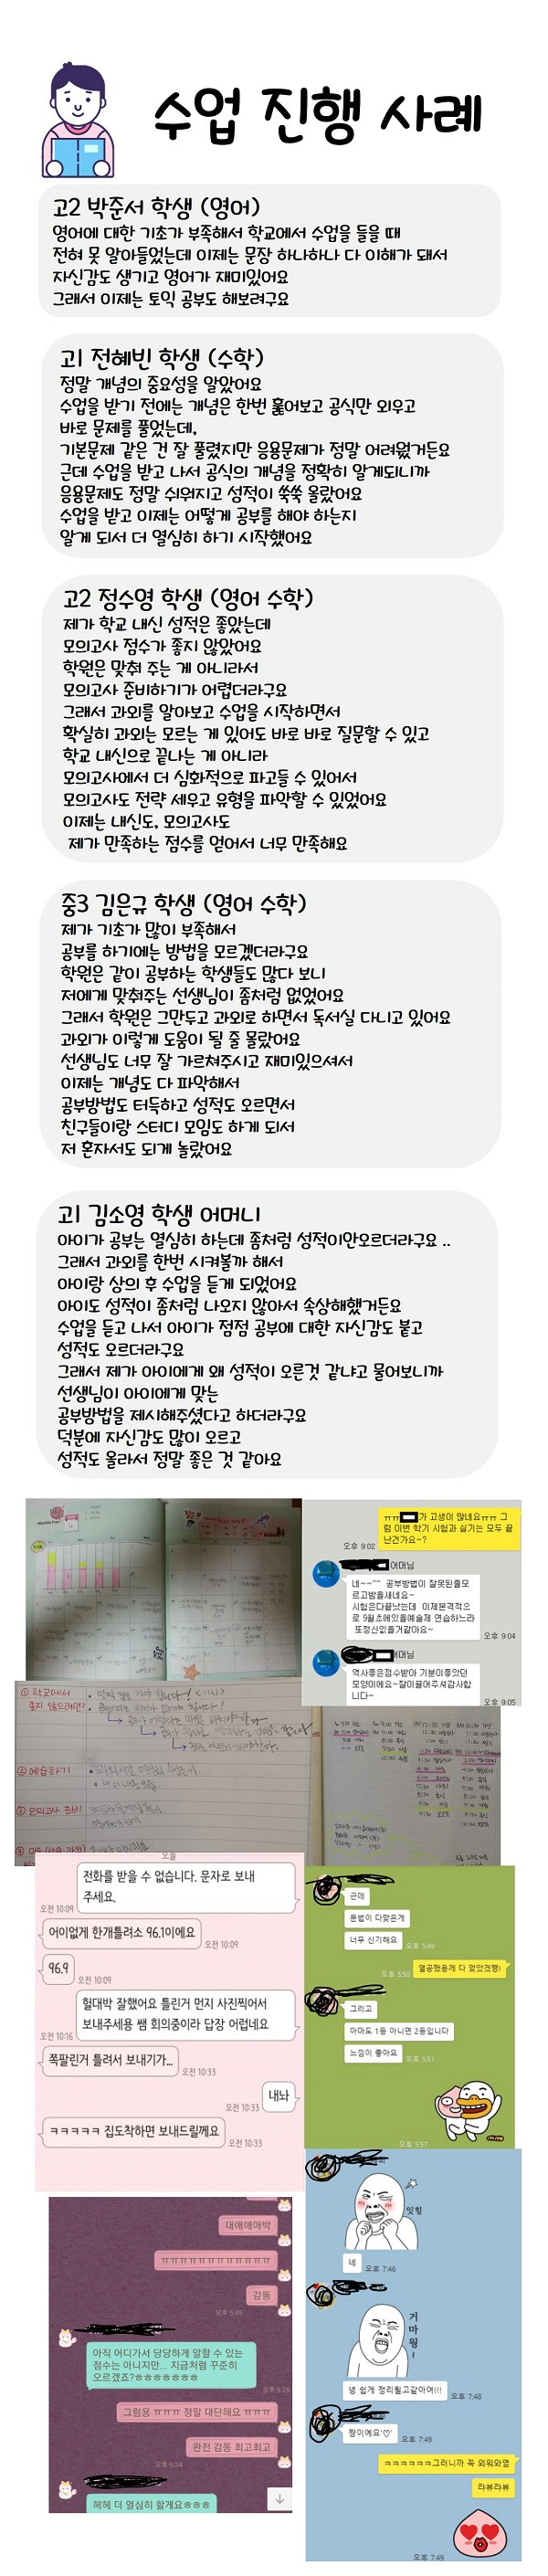 수업 진행 사례
고2 박준서 학생 (영어)
영어에 대한 기초가 부족해서 학교에서 수업을 들을 때
전혀 못 알아들었는데 이제는 문장 하나하나 다 이해가 돼서
자신감도 생기고 영어가 재미있어요
그래서 이제는 토익 공부도 해보려구요
고1 전혜빈 학생 (수학)
정말 개념의 중요성을 알았어요
수업을 받기 전에는 개념은 한번 훑어보고 공식만 외우고
바로 문제를 풀었는데,
기본문제 같은 건 잘 풀렸지만 응용문제가 정말 어려웠거든요
근데 수업을 받고 나서 공식의 개념을 정확히 알게되니까
응용문제도 정말 쉬워지고 성적이 쑥쑥 올랐어요
수업을 받고 이제는 어떻게 공부를 해야 하는지
알게 되서 더 열심히 하기 시작했어요
고2 정수영 학생 (영어 수학)
제가 학교 내신 성적은 좋았는데
모의고사 점수가 좋지 않았어요
학원은 맞춰 주는 게 아니라서
모의고사 준비하기가 어렵더라구요
그래서 과외를 알아보고 수업을 시작하면서
확실히 과외는 모르는 게 있어도 바로 바로 질문할 수 있고
학교 내신으로 끝나는 게 아니라
모의고사에서 더 심화적으로 파고들 수 있어서
모의고사도 전략 세우고 유형을 파악할 수 있었어요
이제는 내신도, 모의고사도
제가 만족하는 점수를 얻어서 너무 만족해요
중3 김은규 학생 (영어 수학)
제가 기초가 많이 부족해서
공부를 하기에는 방법을 모르겠더라구요
학원은 같이 공부하는 학생들도 많다 보니
저에게 맞춰주는 선생님이 좀처럼 없었어요
그래서 학원은 그만두고 과외로 하면서 독서실 다니고 있어요
과외가 이렇게 도움이 될 줄 몰랐어요
선생님도 너무 잘 가르쳐주시고 재미있으셔서
이제는 개념도 다 파악해서
공부방법도 터득하고 성적도 오르면서
친구들이랑 스터디 모임도 하게 되서
저 혼자서도 되게 놀랐어요
고1 김소영 학생 어머니
아이가 공부는 열심히 하는데 좀처럼 성적이안오르더라구요 ..
그래서 과외를 한번 시켜볼까 해서
아이랑 상의 후 수업을 듣게 되었어요
아이도 성적이 좀처럼 나오지 않아서 속상해했거든요
수업을 듣고 나서 아이가 점점 공부에 대한 자신감도 붙고
성적도 오르더라구요
그래서 제가 아이에게 왜 성적이 오른것 같냐고 물어보니까
선생님이 아이에게 맞는
공부방법을 제시해주셨다고 하더라구요
덕분에 자신감도 많이 오르고
성적도 올라서 정말 좋은 것 같아요
ㅠㅠ 가 고생이 많네요ㅠㅠ 그
럼 이번 학기 시험과 실기는 모두 끝
난건가요~?
오후 9:02
어머님
네~~^^ 공부방법이 잘못된줄모
르고밤을새네요~
시험은다끝났는데 이제본격적으
로 9월초에있을예술제 연습하느라
또정신없을거같아요~
오후 9:04
머님
역사좋은점수받아 기분이좋았던
모양이에요~잘이끌어주셔감사합
니다~
오후 9:05
① 학교에서
② 예습하기
③ 모의고사 준비
오늘
전화를 받을 수 없습니다. 문자로 보내
주세요.
오전 10:09
어이없게 한개틀려소 96.1이에요
오전 10:09
96.9
오전 10:09
헐대박 잘했어요 틀린거 먼지 사진찍어서
보내주세용 쌤 회의중이라 답장 어렵네요
오전 10:16
쪽팔린거 틀려서 보내기가...
오전 10:33
내놔
오전 10:33
ㅋㅋㅋㅋㅋ 집도착하면 보내드릴께요
오전 10:33
근데
문법이 다맞은게
너무 신기해요
오후 5:49
열공했응께 다 맞았겠쨩!
오후 5:50
그리고
아마도 1등 아니면 2등입니다
느낌이 좋아요
오후 5:51
오후 5:57
대애애애박
ㅠㅠㅠㅠㅠㅠㅠㅠㅠㅠㅠ
감동
오후 5:49
아직 어디가서 당당하게 말할 수 있는
점수는 아니지만... 지금처럼 꾸준히
오르겠죠?ㅎㅎㅎㅎㅎㅎㅎ
오후 6:26
그럼용 ㅠㅠㅠ 정말 대단해요 ㅠㅠㅠ
완전 감동 최고최고
오후 6:34
헤헤 더 열심히 할게요ㅎㅎㅎ
잇힝
네
오후 7:46
거마웡~
넹 쉽게 정리될고같아여!!!
오후 7:48
짱이예요'♡'
오후 7:49
ㅋㅋㅋㅋㅋㅋ그러니까 꼭 외워와염
랴뷰랴뷰
오후 7:49